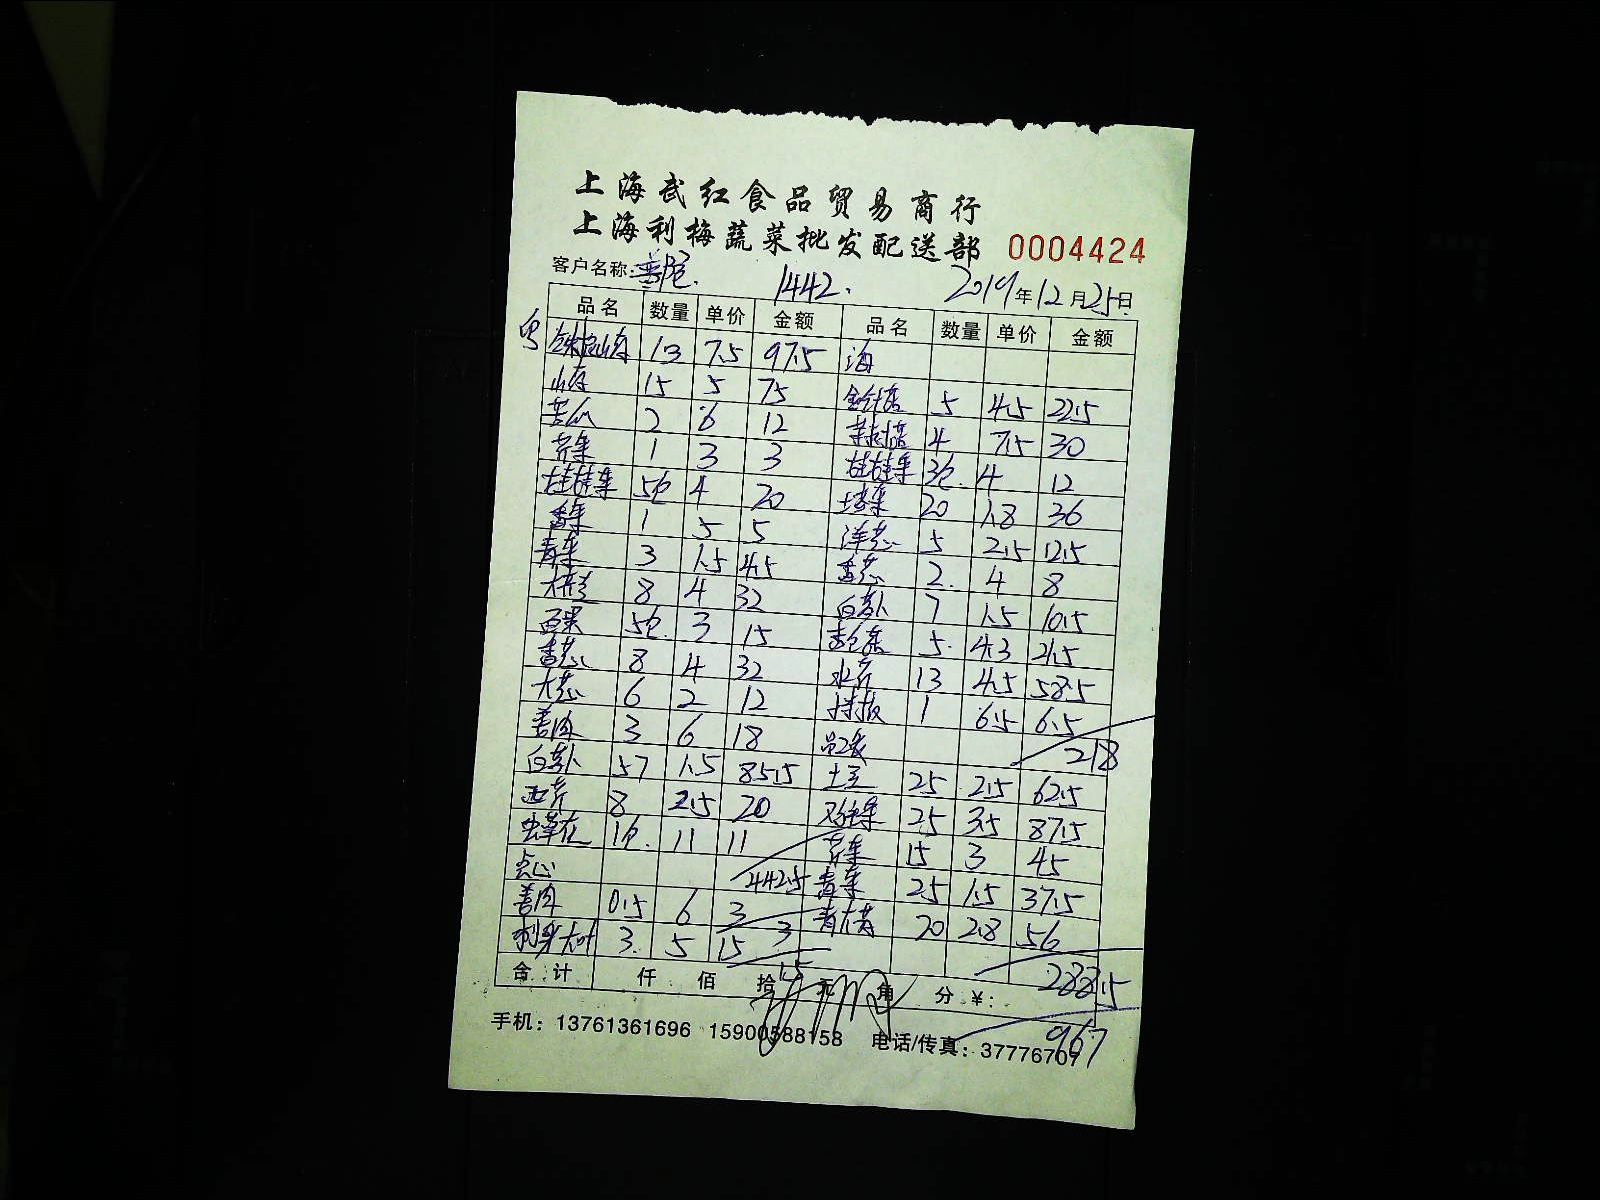 上海武红食品贸易商行
上海利梅蔬菜批发配送部 0004424
客户名称: 1442. 2019年12月25日
品名 数量 单价 金额 品名 数量 单价 金额
铁棍山药 13 7.5 97.5 海
山药 15 5 75 金针菇 5 4.5 22.5
苦瓜 2 6 12 茶树菇 4 7.5 30
芹菜 1 3 3 娃娃菜 3包. 4 12
娃娃菜 5包 4 20 土菜 20 1.8 36
香菜 1 5 5 洋葱 5 2.5 12.5
青菜 3 1.5 4.5 香葱 2. 4 8
8 4 32 白萝卜 7 1.5 10.5
百果 5包. 3 15 5. 4.3 21.5
香葱 8 4 32 水芹 13 4.5 58.5
大葱 6 2 12 1 6.5 6.5
姜肉 3 6 18 218
白萝卜 57 1.5 85.5 土豆 25 2.5 62.5
西芹 8 2.5 20 25 3.5 87.5
虫草花 1包. 11 11 芹菜 15 3 45
点心 442.5 青菜 25 1.5 37.5
姜肉 0.5 6 3 20 2.8 56
3
刺身大叶 3. 5 15
15
288.5
合计 仟 佰 拾 元 角 分 ¥:
967
手机: 13761361696 15900588158 电话/传真: 37776709